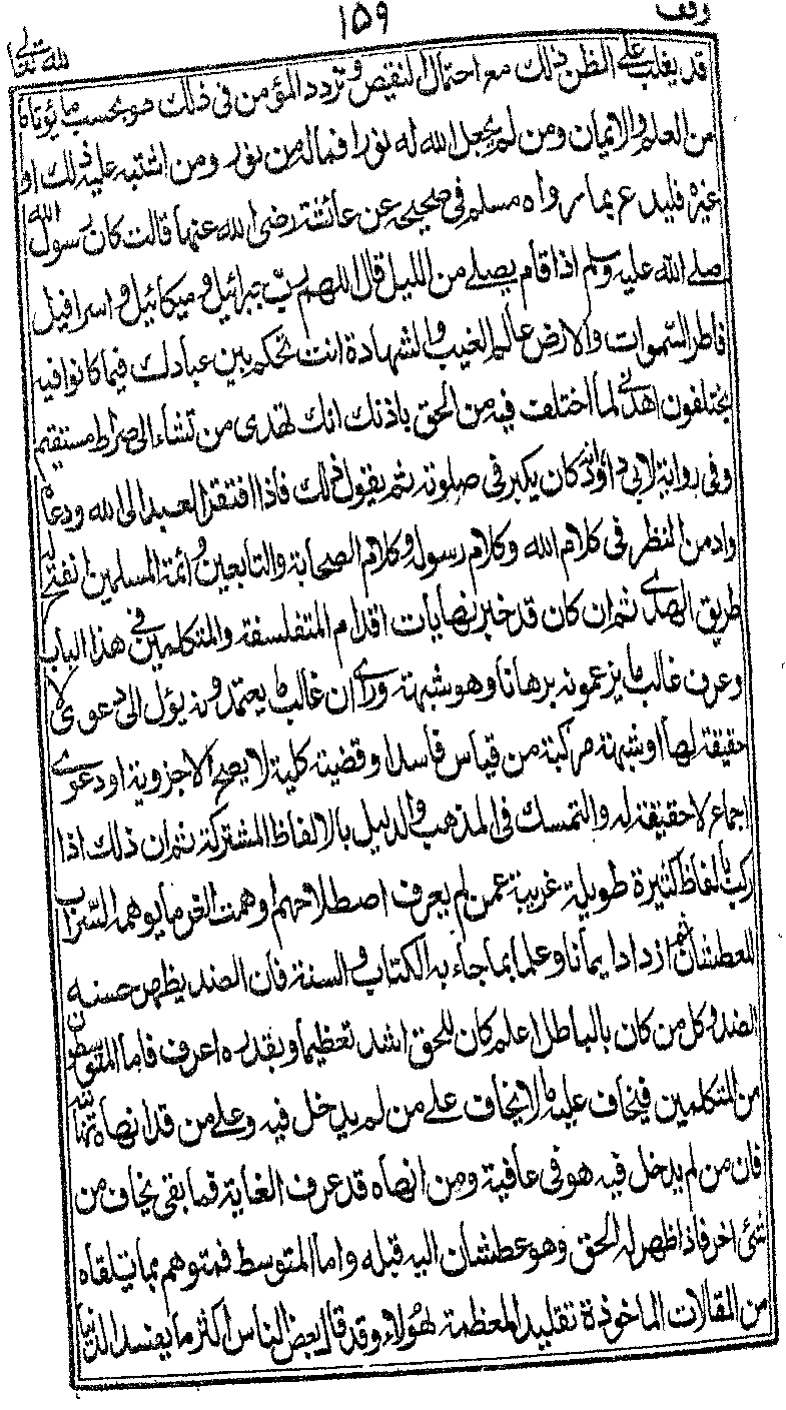 ١٥٩
قد يغلب على الظن ذلك مع احتمال النقيض وتردد المؤمن فى ذلك هو بحسب ما يؤتاه
من العلم والايمان ومن لم يجعل الله له نورا فماله من نور ومن اشتبه عليه ذلك او
غيره فليدع بما رواه مسلم فى صحيحه عن عائشة رضى الله عنها قالت كان رسول الله
صلے الله عليه وسلم اذا قام يصلے من الليل قال اللهم رب جبرائيل وميكائيل واسرافيل
فاطر السموات والارض عالم الغيب والشهادة انت تحكم بين عبادك فيما كانوا فيه
يختلفون اهدنى لما اختلف فيه من الحق باذنك انك تهدى من تشاء الى صراط مستقيم
وفى رواية لابى داود انه كان يكبر فى صلوته ثم يقول ذلك فاذا افتقر العبد الى الله ودعاه
وادمن النظر فى كلام الله وكلام رسوله وكلام الصحابة والتابعين وائمة المسلمين انفتح له
طريق الهدے ثم ان كان قد خبر نهايات اقدام المتفلسفة والمتكلمين فى هذا الباب
وعرف غالب ما يزعمونه برهانا وهو شبهة ورأے ان غالب ما يعتمدونه يؤل الى دعوى لا
حقيقة لها او شبهة مركبة من قياس فاسد او قضية كلية لا يصح الا جزوية او دعوے
اجماع لا حقيقة له والتمسك فى المذهب والدليل بالالفاظ المشتركة ثم ان ذلك اذا
ركب بالفاظ كثيرة طويلة غريبة عمن لم يعرف اصطلاحهم اوهمت الغر ما يوهمه السراب
للعطشان ثم ازداد ايمانا وعلما بما جاء به الكتاب والسنة فان الضد يظهر حسنه
الضد وكل من كان بالباطل اعلم كان للحق اشد تعظيما وبقدره اعرف فاما المتوسطون
من المتكلمين فيخاف عليه ما لا يخاف علے من لم يدخل فيه وعلے من قد انهاه نهايته
فان من لم يدخل فيه هو فى عافية ومن انهاه قد عرف الغاية فما بقى يخاف من
شئ اخر فاذا ظهر له الحق وهو عطشان اليه قبله واما المتوسط فمتوهم بما يتلقاه
من المقالات الماخوذة تقليد المعظمة هؤلاء وقد قال بعض الناس اكثر ما يفسد الدنيا